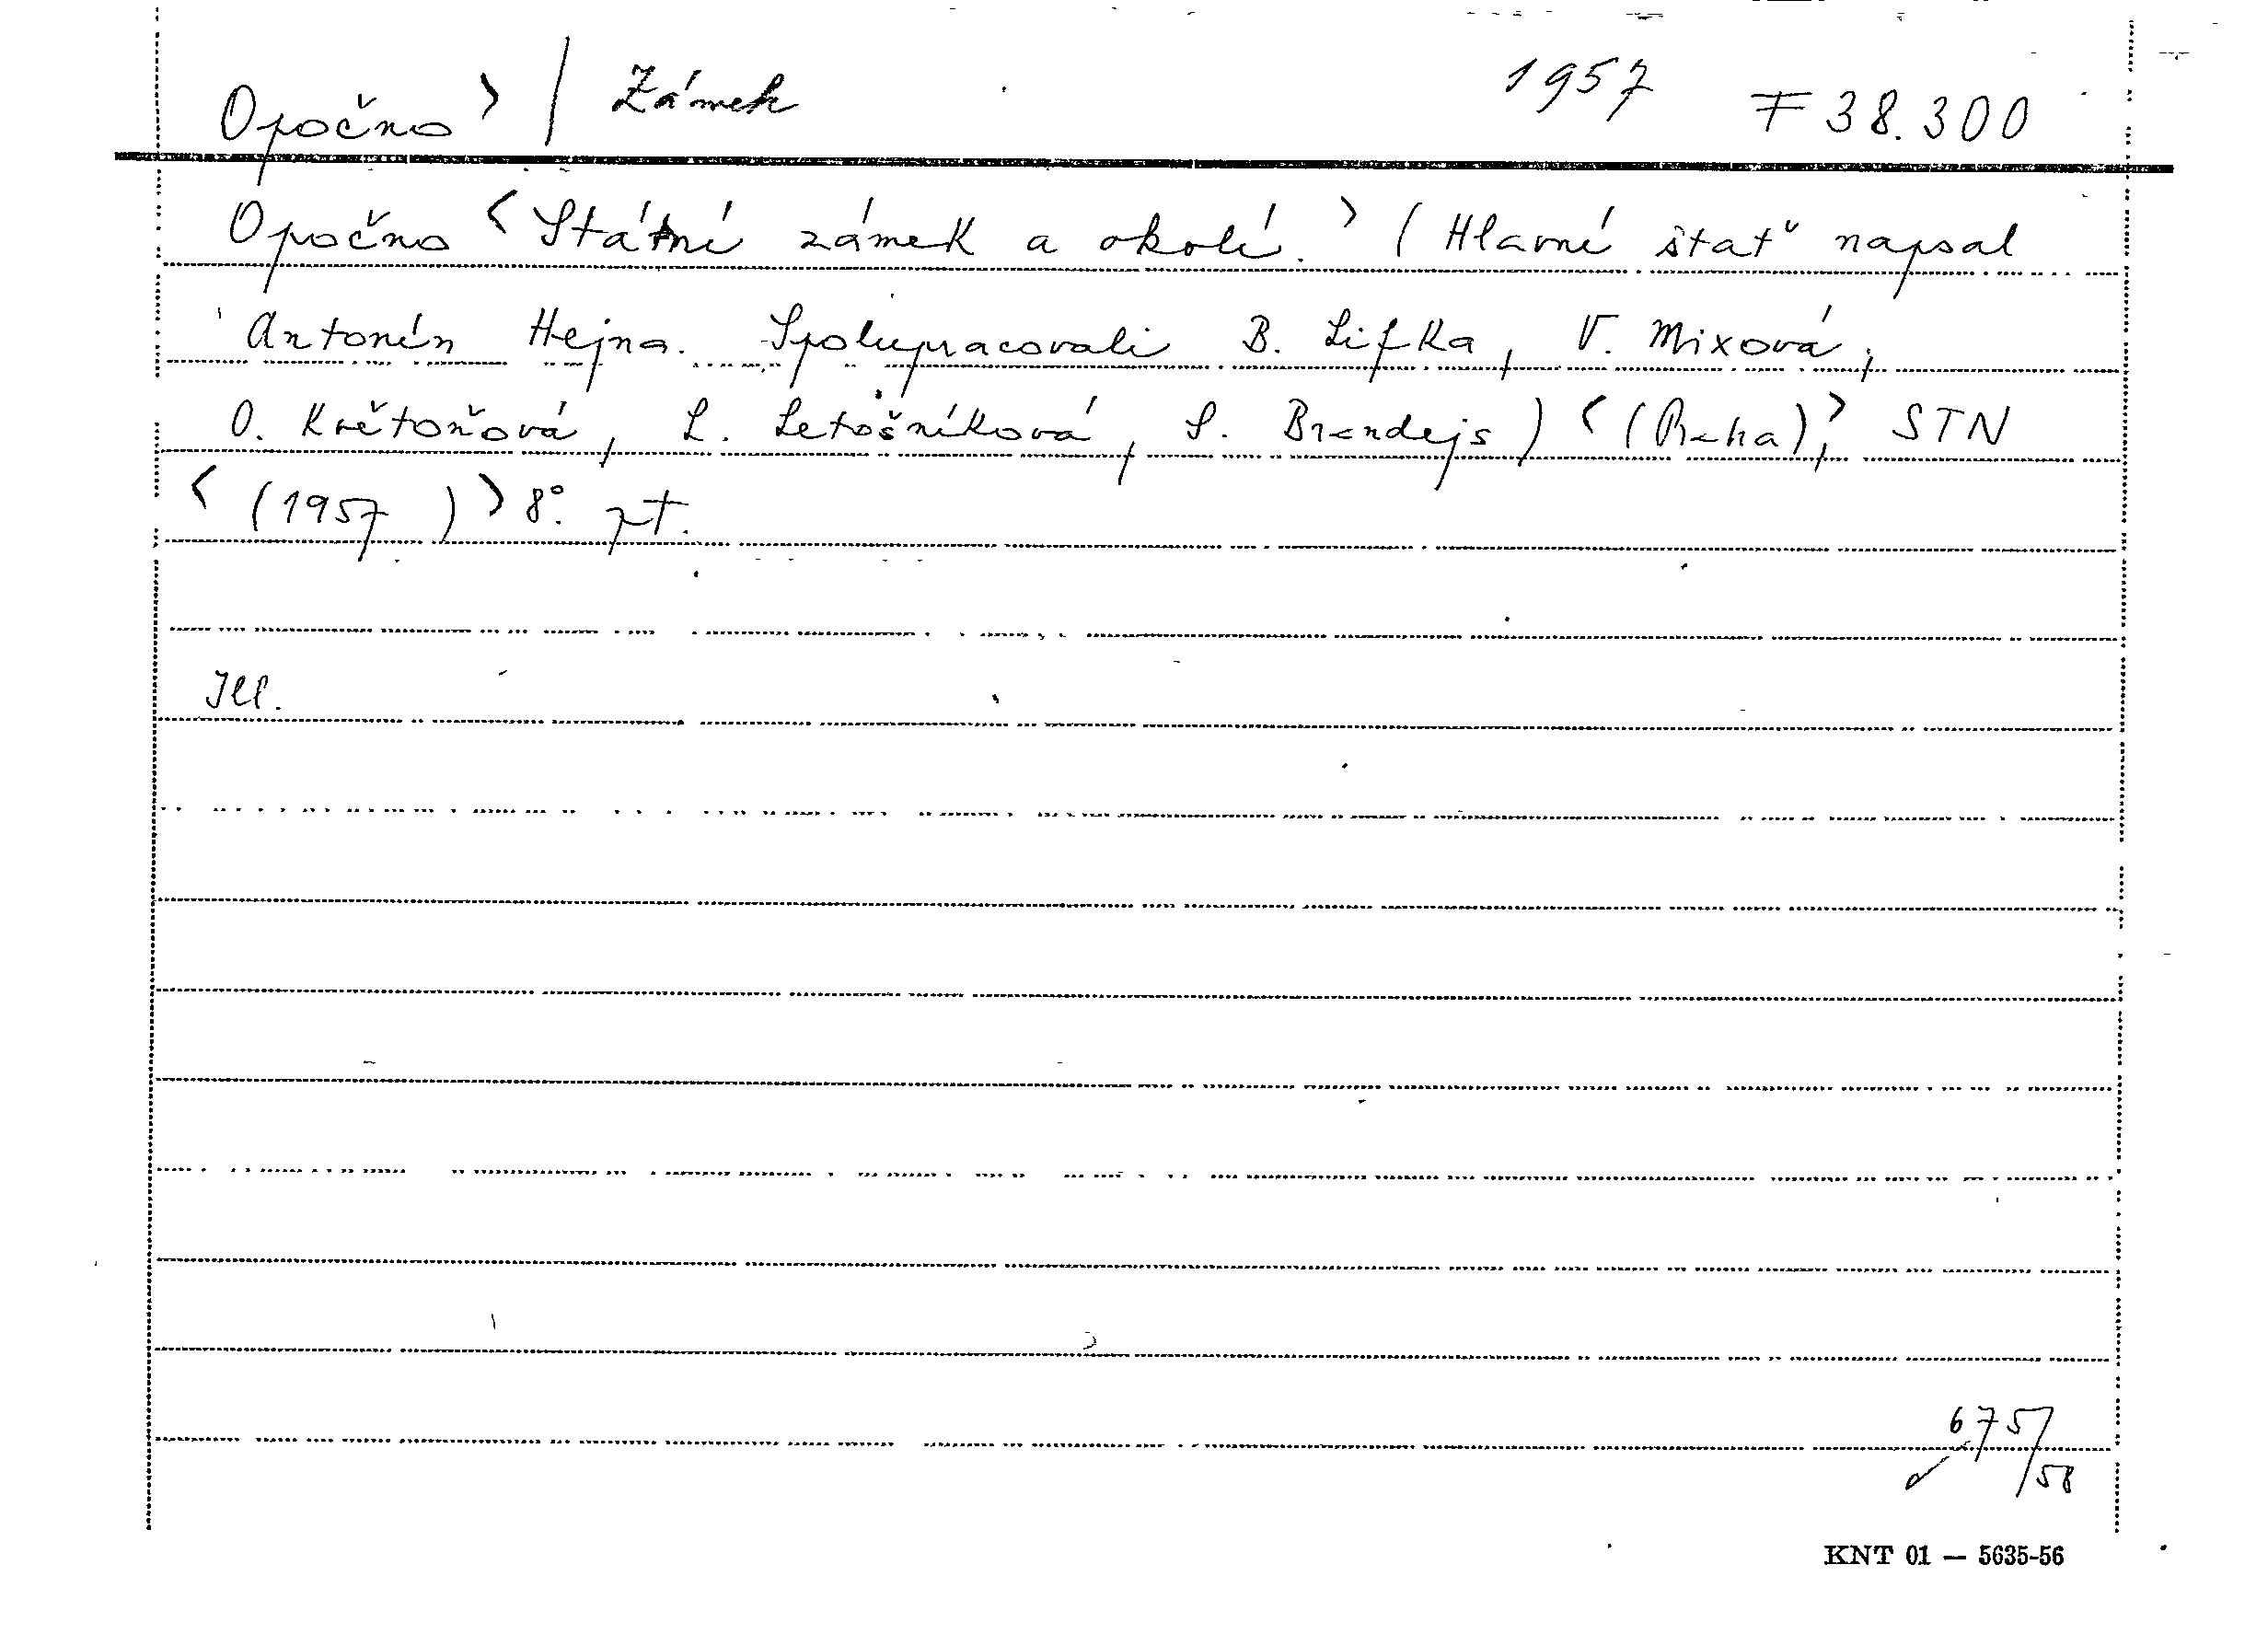 Opočno > / Zámek 1957 F 38.300
Opočno < Státní zámek a okolí. > ( Hlavní stať napsal
Antonín Hejna. Spolupracovali B. Lifka, V. Mixová,
O. Květoňová, L. Letošníková, S. Brandejs ) < (Praha), > STN
< (1957 ) > 8°. pt.
Ill.
675/58
KNT 01 — 5635-56